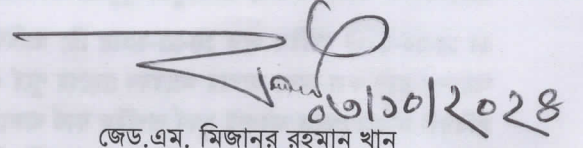 ০৩/১০/২০২৪
জেড.এম. মিজানুর রহমান খান